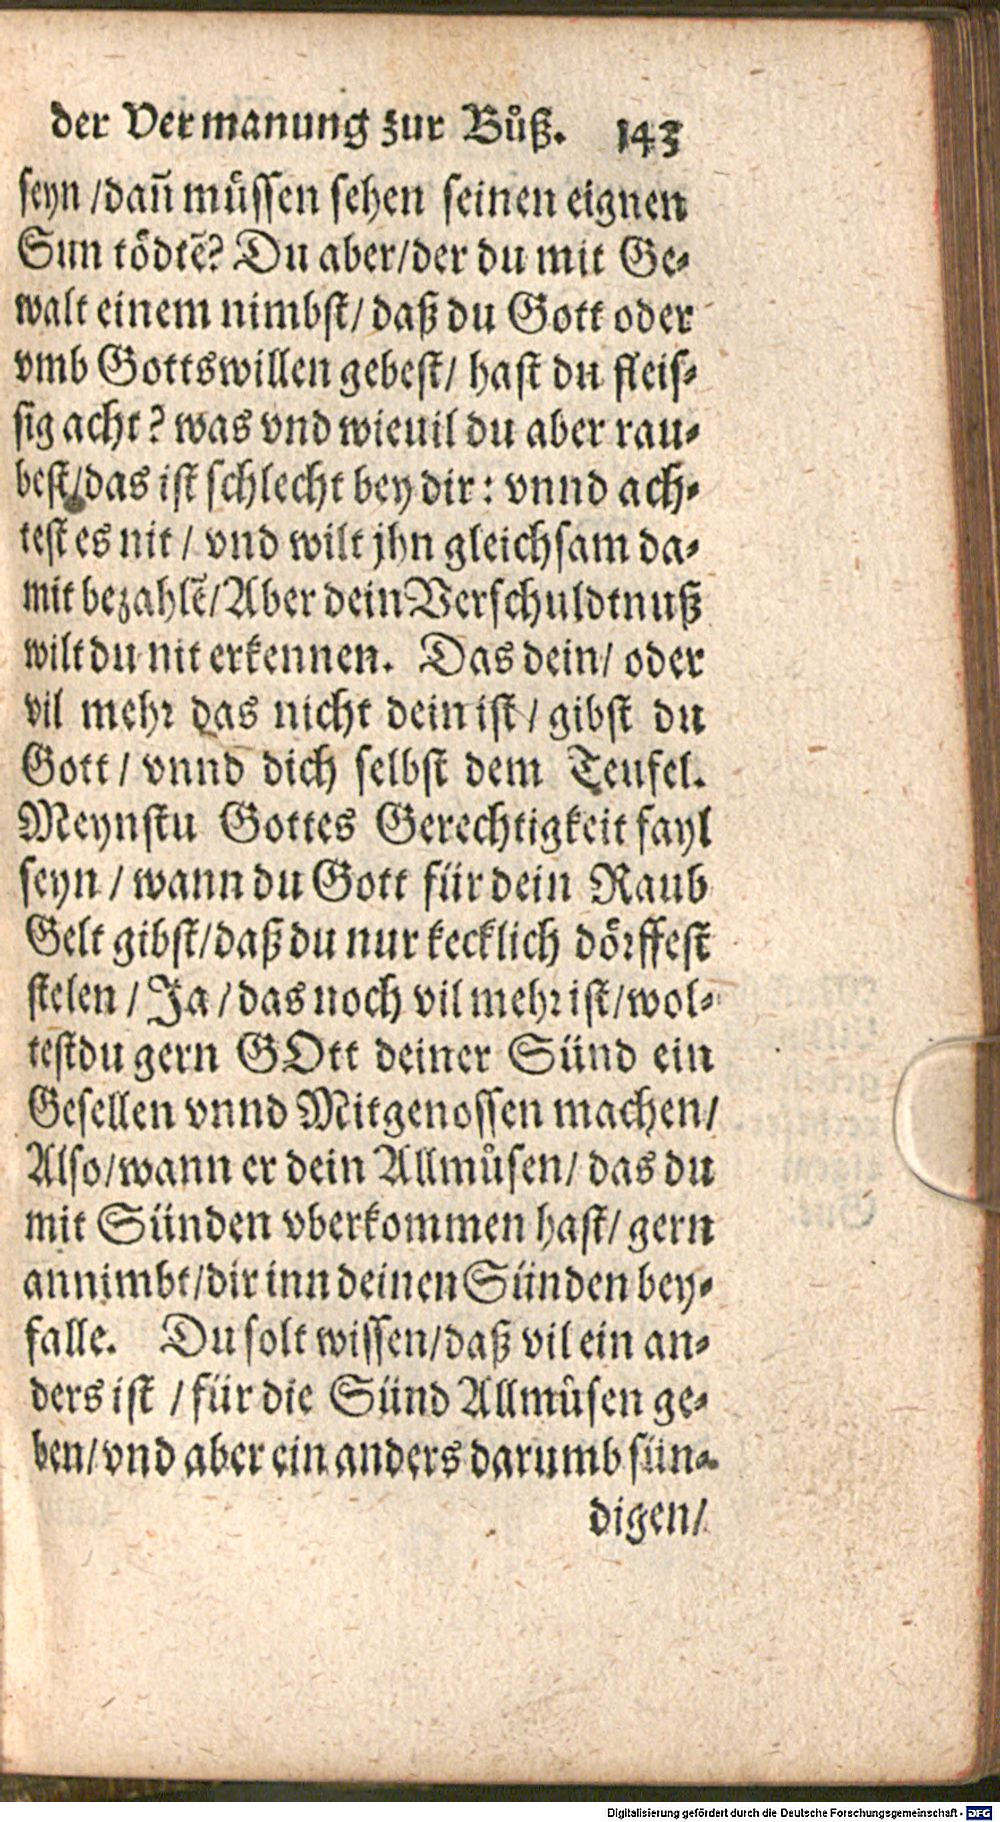 der Vermanung zur Bůß. 143
seyn /dañ müssen sehen seinen eignen
Sun tödtẽ? Du aber/der du mit Ge-
walt einem nimbst/ daß du Gott oder
vmb Gottswillen gebest/ hast du fleis-
sig acht? was vnd wieuil du aber rau-
best/das ist schlecht bey dir: vnnd ach-
test es nit / vnd wilt jhn gleichsam da-
mit bezahlẽ/Aber dein Verschuldtnuß
wilt du nit erkennen. Das dein/ oder
vil mehr das nicht dein ist / gibst du
Gott / vnnd dich selbst dem Teufel.
Meynstu Gottes Gerechtigkeit fayl
seyn / wann du Gott für dein Raub
Gelt gibst/daß du nur kecklich dörffest
stelen / Ja / das noch vil mehr ist/wol-
test du gern GOtt deiner Sünd ein
Gesellen vnnd Mitgenossen machen/
Also/wann er dein Allmůsen/ das du
mit Sünden vberkommen hast/ gern
annimbt/dir inn deinen Sünden bey-
falle. Du solt wissen/daß vil ein an-
ders ist /für die Sünd Allmůsen ge-
ben/vnd aber ein anders darumb sün-
digen/
Digitalisierung gefördert durch die Deutsche Forschungsgemeinschaft - DFG